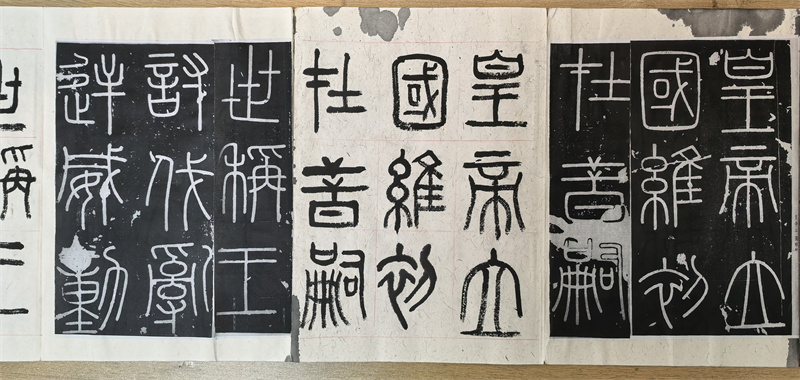 皇帝立
國維初
在昔嗣
皇帝立
國維初
在昔嗣
世稱王
討伐亂
逆威動
世稱王